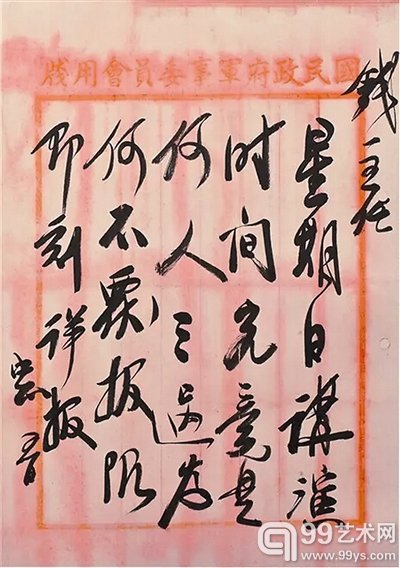 國民政府軍事委員會用牋
錢主任
星期日講演
时间究竟是
何人之過为
何不
即刻詳报
99艺术网
www.99ys.com